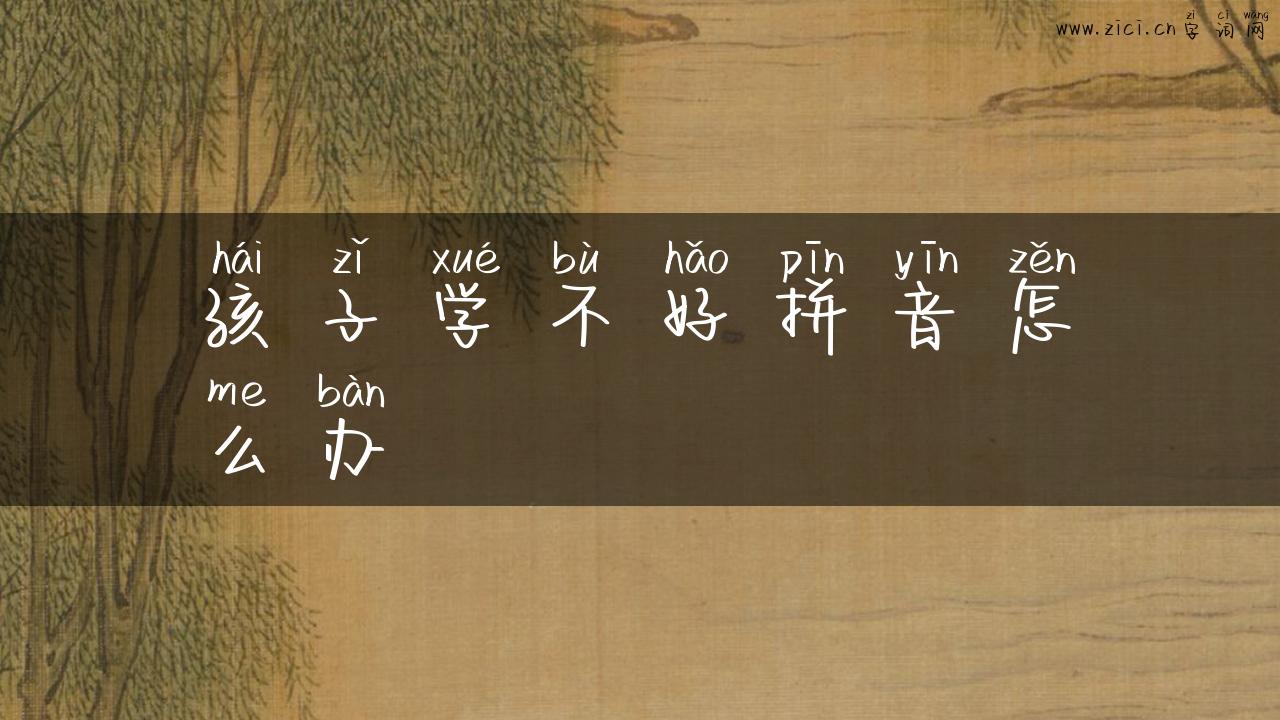 zì cí wǎng
www.zici.cn 字词网
hái zǐ xué bù hǎo pīn yīn zěn
孩子学不好拼音怎
me bàn
么办